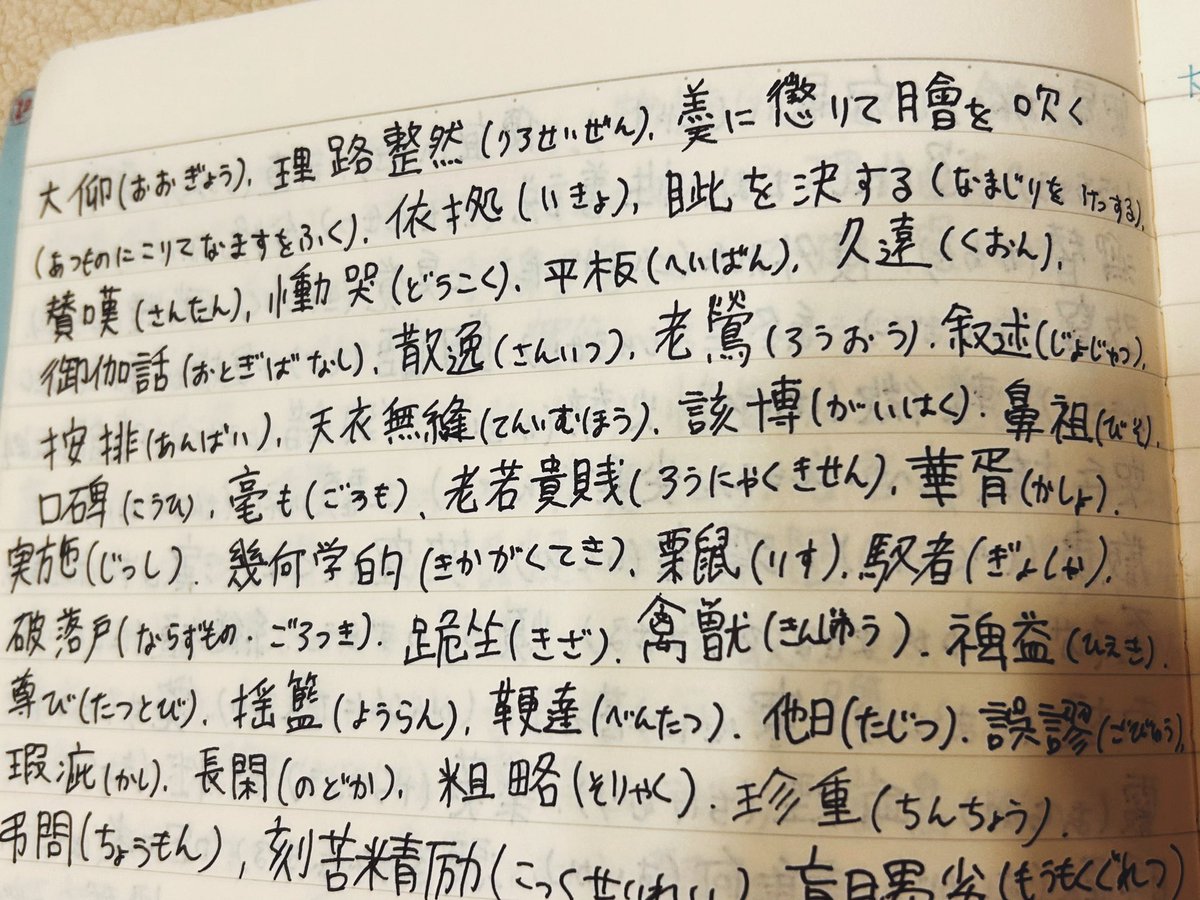 大仰(おおぎょう)、理路整然(りろせいぜん)、羹に懲りて膾を吹く
(あつものにこりてなますをふく)、依拠(いきょ)、眦を決する(なまじりをけっする)、
賛嘆(さんたん)、慟哭(どうこく)、平板(へいばん)、久遠(くおん)、
御伽話(おとぎばなし)、散逸(さんいつ)、老鶯(ろうおう)、叙述(じょじゅつ)、
按排(あんばい)、天衣無縫(てんいむほう)、該博(がいはく)、鼻祖(びそ)、
口碑(こうひ)、毫も(ごろも)、老若貴賎(ろうにゃくきせん)、華胥(かしょ)、
実施(じっし)、幾何学的(きかがくてき)、栗鼠(りす)、馭者(ぎょしゃ)、
破落戸(ならずもの・ごろつき)、跪坐(きざ)、禽獣(きんじゅう)、裨益(ひえき)、
尊び(たっとび)、揺籃(ようらん)、鞭達(べんたつ)、他日(たじつ)、誤謬(ごびゅう)、
瑕疵(かし)、長閑(のどか)、粗略(そりゃく)、珍重(ちんちょう)、
弔問(ちょうもん)、刻苦精励(こっくせいれい)、盲目愚劣(もうもくぐれつ)